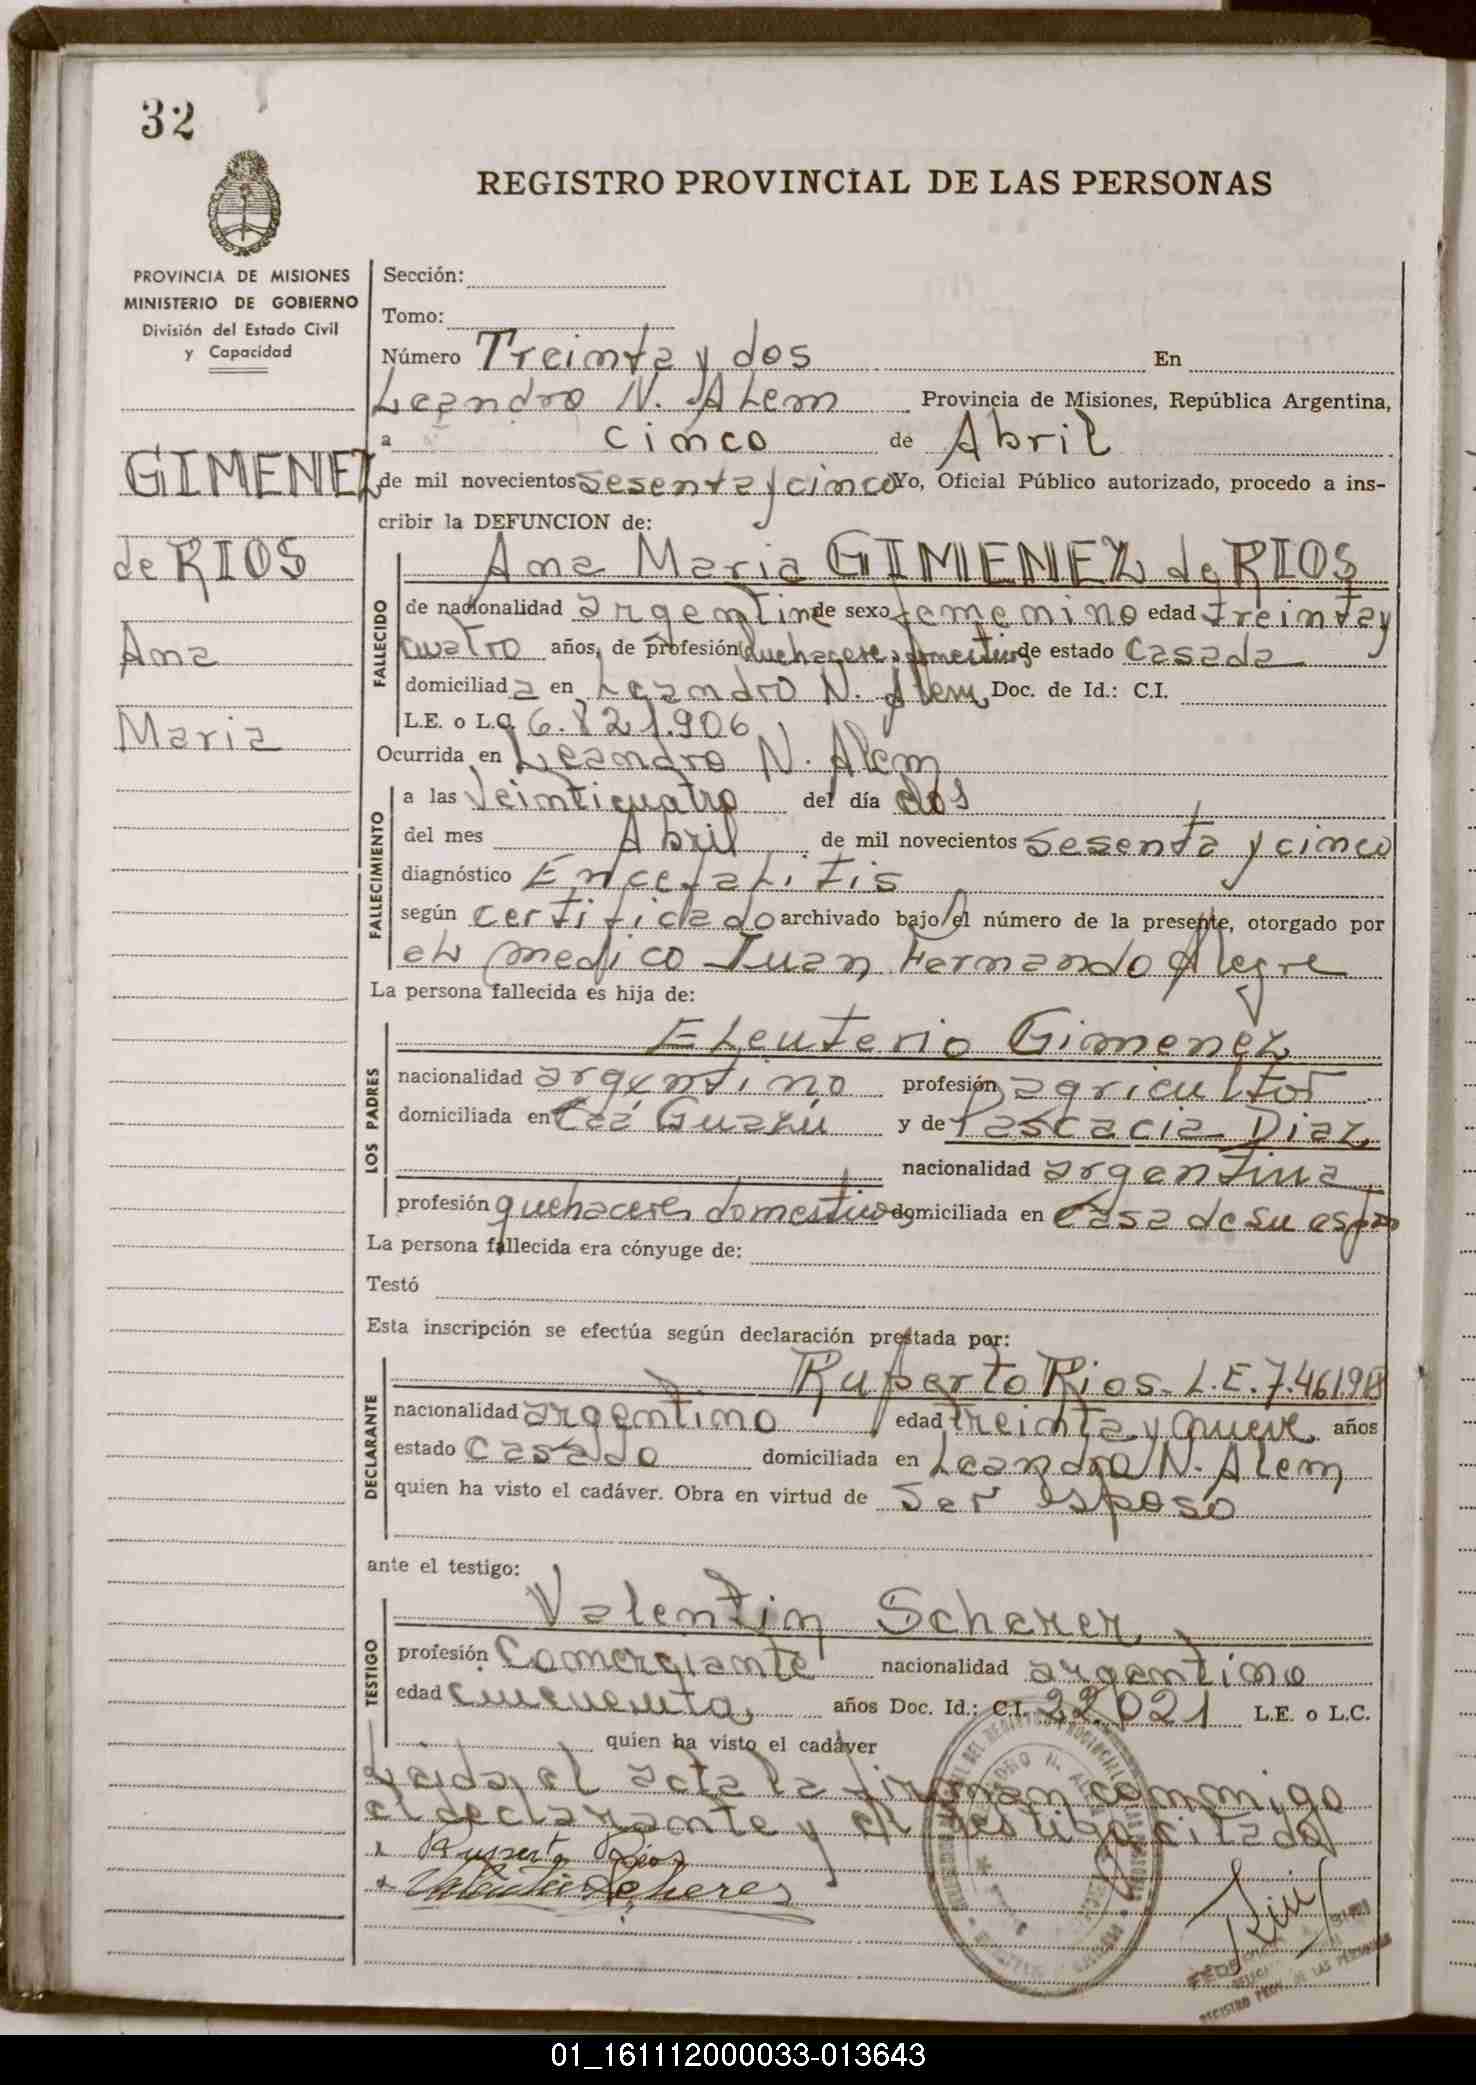 32
REGISTRO PROVINCIAL DE LAS PERSONAS
PROVINCIA DE MISIONES
MINISTERIO DE GOBIERNO
División del Estado Civil
y Capacidad
GIMENEZ
de RIOS
Ana
Maria
Sección:
Tomo:
Número Treinta y dos En
Leandro N. Alem Provincia de Misiones, República Argentina,
a cinco de Abril
de mil novecientos sesenta y cinco Yo, Oficial Público autorizado, procedo a ins-
cribir la DEFUNCION de:
FALLECIDO
Ana Maria GIMENEZ de RIOS
de nacionalidad argentina de sexo femenino edad treinta y
cuatro años, de profesión quehaceres domesticos de estado Casada
domiciliada en Leandro N. Alem Doc. de Id.: C.I.
L.E. o L.C. 6.821.906
Ocurrida en Leandro N. Alem
FALLECIMIENTO
a las Veinticuatro del día dos
del mes Abril de mil novecientos sesenta y cinco
diagnóstico Encefalitis
según certificado archivado bajo el número de la presente, otorgado por
el medico Juan Fernando Alegre
La persona fallecida es hija de:
LOS PADRES
Eleuterio Gimenez
nacionalidad argentino profesión agricultor
domiciliada en Caá Guazú y de Pascacia Diaz
nacionalidad argentina
profesión quehaceres domesticos domiciliada en casa de su esposo
La persona fallecida era cónyuge de:
Testó
Esta inscripción se efectúa según declaración prestada por:
DECLARANTE
Ruperto Rios. L.E. 7.461.918
nacionalidad argentino edad treinta y nueve años
estado Casado domiciliada en Leandro N. Alem
quien ha visto el cadáver. Obra en virtud de Ser esposo
ante el testigo:
TESTIGO
Valentin Scherer
profesión Comerciante nacionalidad argentino
edad cincuenta años Doc. Id.: C.I. 22.021 L.E. o L.C.
quien ha visto el cadáver
Leida el acta la firman conmigo
el declarante y el testigo citado
Ruperto Rios
Valentin Scherer
REGISTRO PROV. DE LAS PERSONAS
01_161112000033-013643